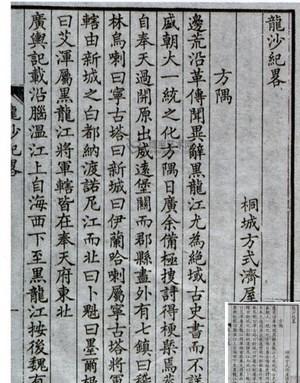 龍沙紀畧
桐城方式濟屋
方隅
邊荒沿革傳聞異辭黑龍江尤為絕域古史書而不詳
盛朝大一統之化方隅日廣余備極搜討得梗槩焉
自奉天過開原出威遠堡關而郡縣盡外有七鎮曰
林烏喇曰寧古塔曰新城曰伊蘭哈喇屬寧古塔將軍
轄由新城之白都納渡諾尼江而北曰卜魁曰墨爾根
曰艾渾屬黑龍江將軍轄皆在奉天府東北
廣輿記載沿腦溫江上自海西下至黑龍江按後魏有
龍沙紀畧